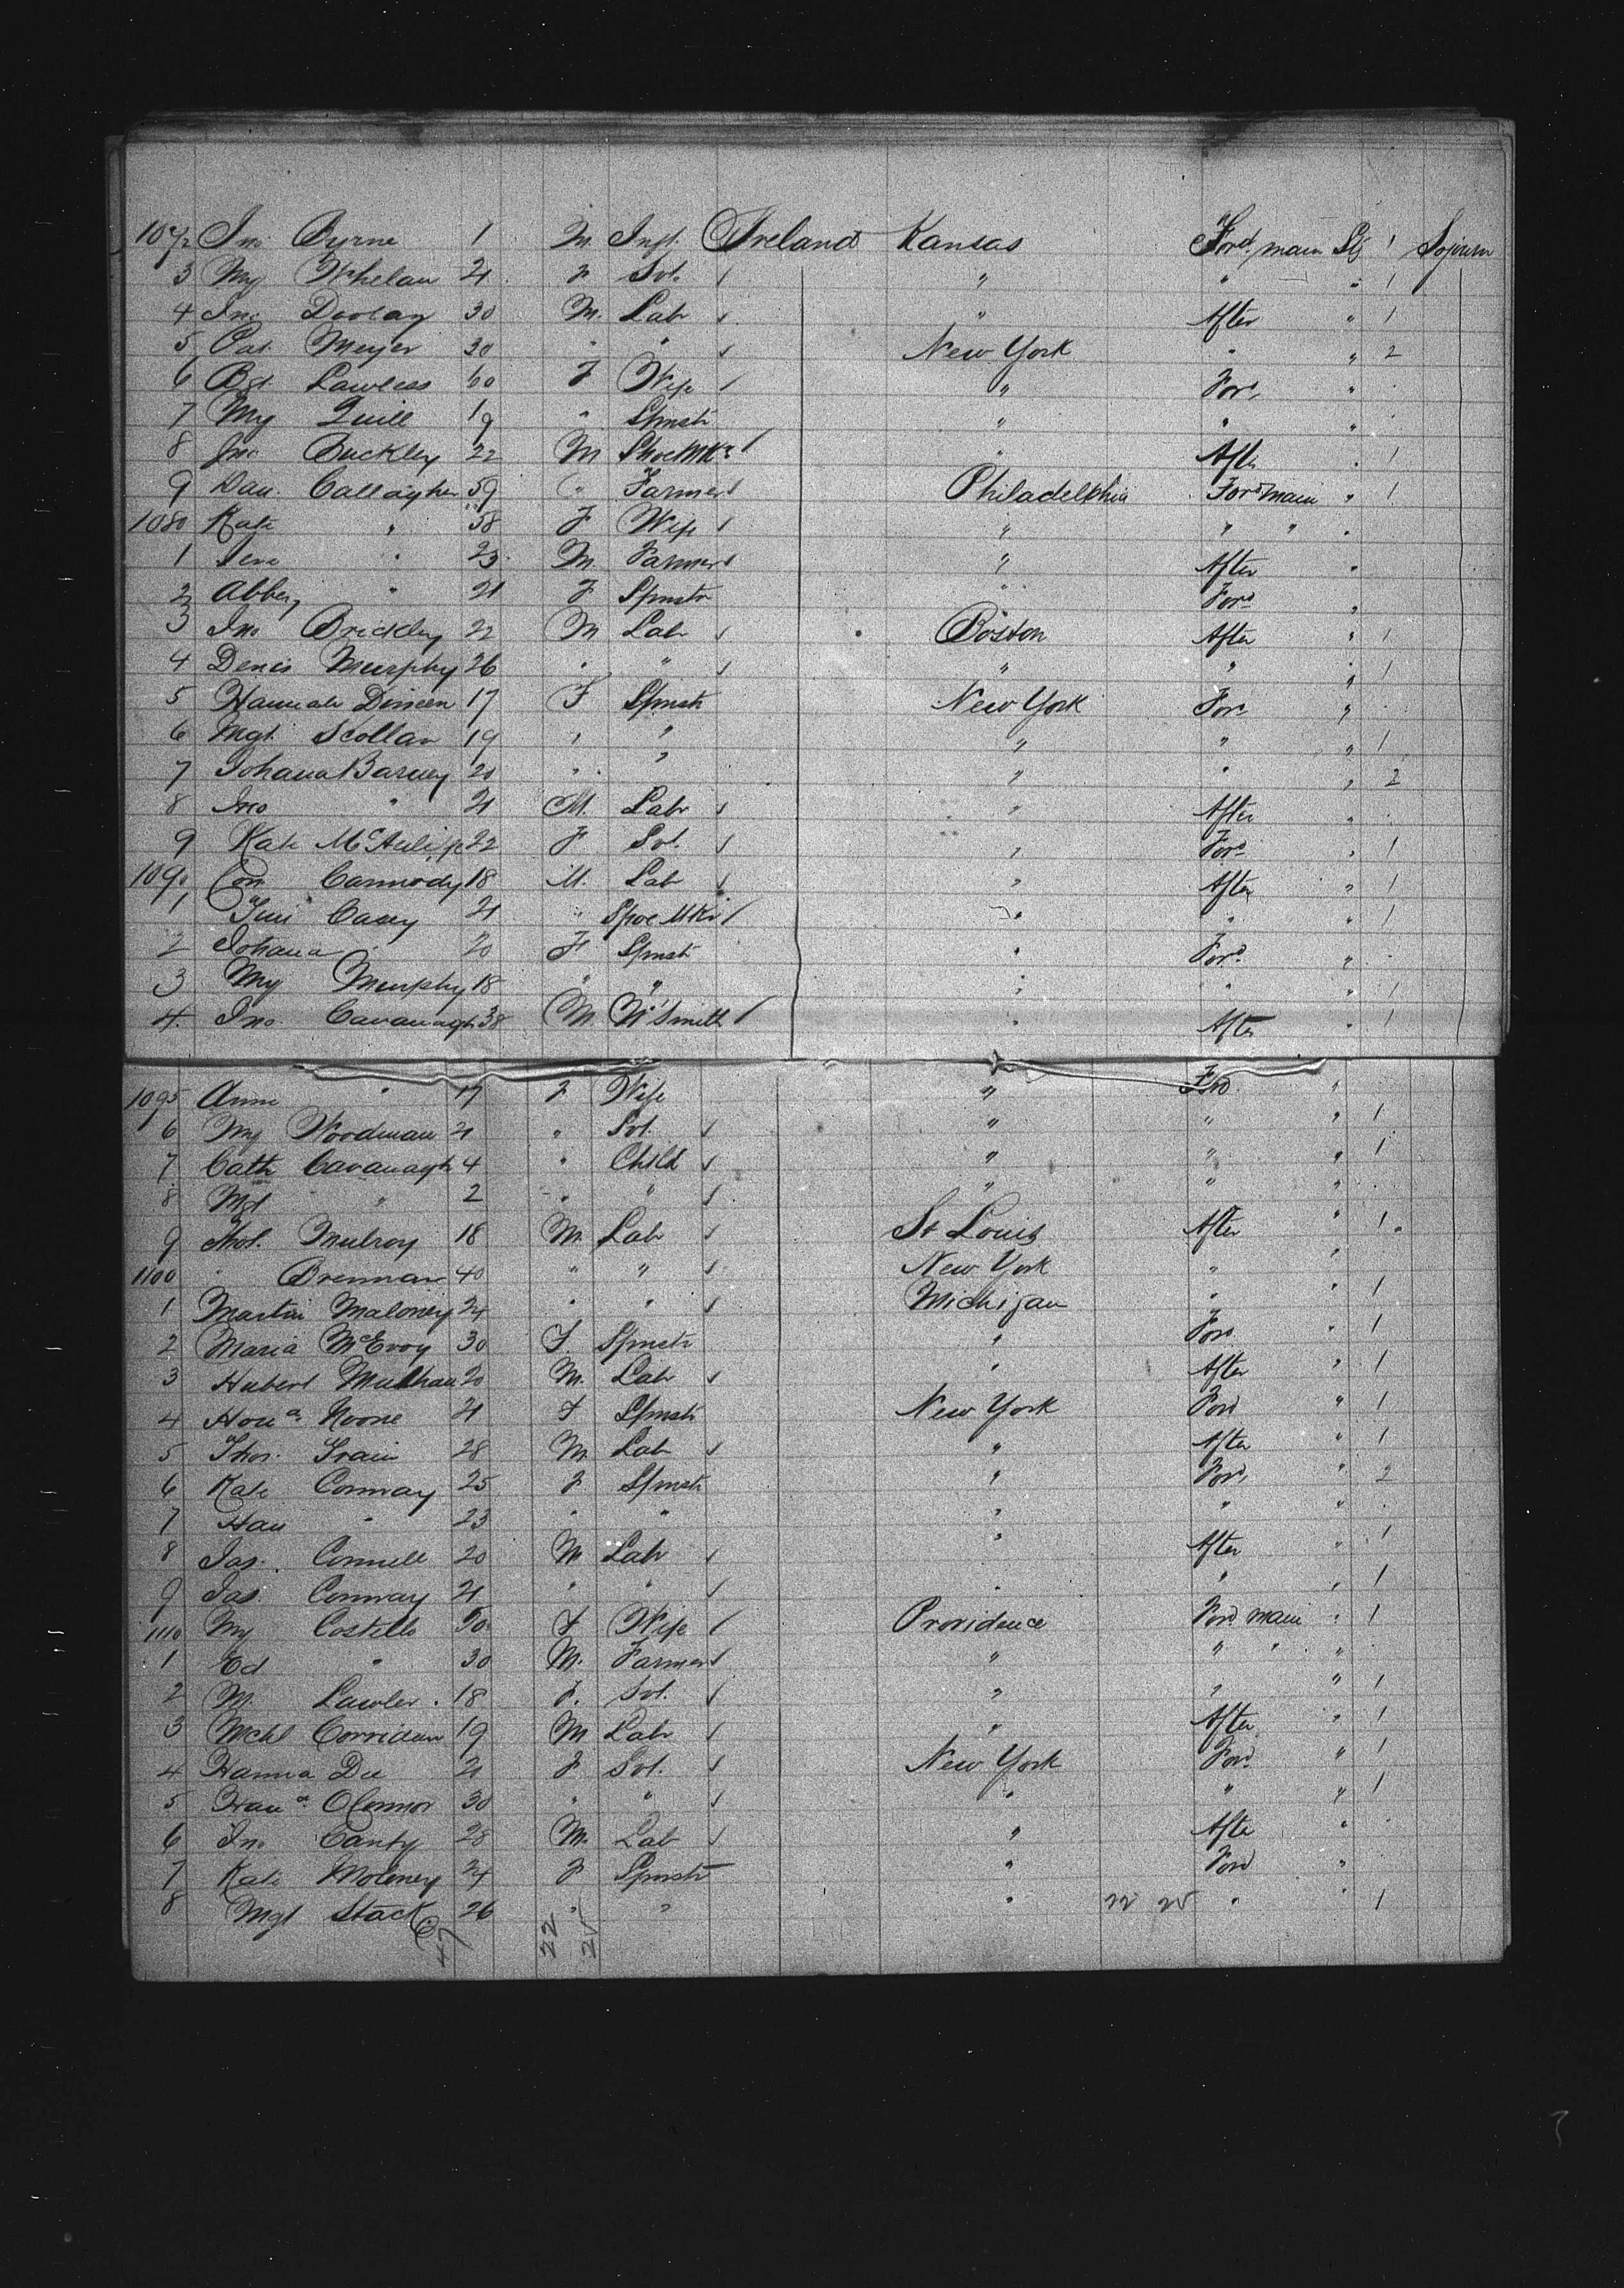 1072 Jno Byrne 1 M Inft Ireland Kansas Ford main Stg 1 Sojourn
3 My Whelan 21 F Svt. " " " 1
4 Jno Doolay 30 M. Lab " After " 1
5 Pat. Meyer 30 " " New York " " 2
6 Bgt Lawless 60 F Wife " For. "
7 My Quill 19 " Spnstr " " "
8 Jno. Buckley 22 M ShoeMkr " After " 1
9 Dan. Callagher 59 " Farmer Philadelphia Ford main " 1
1080 Kate " 58 F Wife " " " "
1 Jere " 23 M Farmer " After "
2 Abbey " 21 F Spnstr " Ford "
3 Jno Brickley 22 M Lab Boston After " 1
4 Denis Murphy 26 " " " " " 1
5 Hannah Dineen 17 F Spnstr New York For. "
6 Mgt Scollan 19 " " " " " 1
7 Johana Barney 20 " " " " " 2
8 Jno " 21 M. Labr " After "
9 Kate McAulife 22 F Svt. " Ford " 1
1090 Con Carmody 18 M. Lab " After " 1
1 Tim Casey 21 " Shoe Mkr " " " 1
2 Johana " 20 F Spnstr " Ford "
3 My Murphy 18 " " " " " 1
4. Jno. Cavanagh 38 M N'Smith " After " 1
1095 Anne " 17 F Wife " Ford "
6 My Woodman 21 " Svt. " " " 1
7 Cath Cavanagh 4 " Child " " " 1
8 Mgt " 2 " " " " "
9 Thos. Mulroy 18 M. Labr St Louis After " 1
1100 " Brennan 40 " " New York " "
1 Martin Maloney 24 " " Michigan " " 1
2 Maria McEvoy 30 F. Spnstr " For. " 1
3 Hubert Mulhau 20 M. Labr " After " 1
4 Hona Noone 21 F Spnstr New York Ford " 1
5 Thos. Grain 28 M Lab " After " 1
6 Kate Conway 25 F Spnstr " Ford " 2
7 Han " 23 " " " " "
8 Jas. Connell 20 M Labr " After " 1
9 Jas. Conway 21 " " " " " 1
1110 My Costello 50 F Wife Providence Ford main " 1
1 Ed " 30 M. Farmer " " " "
2 M. Lawler 18 F. Svt. " " " 1
3 Mchl Corridan 19 M Labr " After " 1
4 Hanna Dee 21 F Svt. New York Ford " 1
5 Hana OConnor 30 " " " " " 1
6 Jno Canty 28 M. Lab " After "
7 Kate Moloney 24 F Spnstr " Ford "
8 Mgt Stack 26 " " " 22 25 " " 1
47 22 25